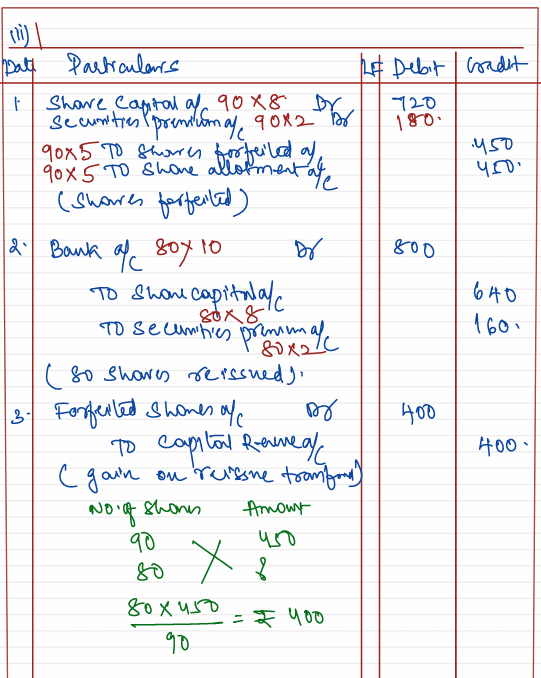 (iii)
Date Particulars LF Debit Credit
1. Share Capital a/c 90 x 8 Dr 720
Securities premium a/c 90x2 Dr 180.
90x5 TO Shares forfeited a/c 450
90x5 TO Share allotment a/c 450.
(Shares forfeited)
2. Bank a/c 80 x 10 Dr 800
TO Share capital a/c 640
80 x 8
TO Securities premium a/c 160.
80x2
(80 Shares reissued).
3. Forfeited Shares a/c Dr 400
TO Capital Reserve a/c 400.
(gain on reissue transfered)
No. of Shares Amount
90 450
80 ?
80 x 450 / 90 = ₹ 400